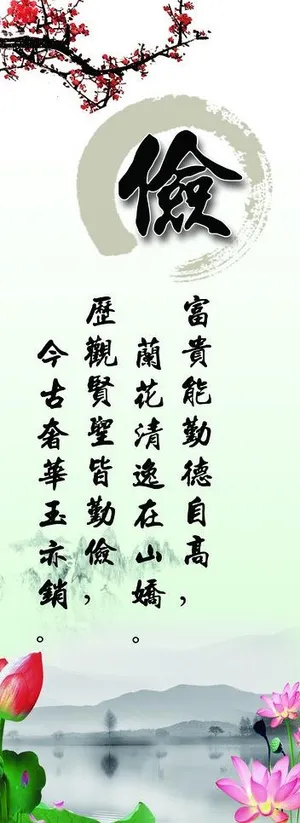 儉
富貴能勤德自高，
蘭花清逸在山嬌。
歷觀賢聖皆勤儉，
今古奢華玉亦銷。